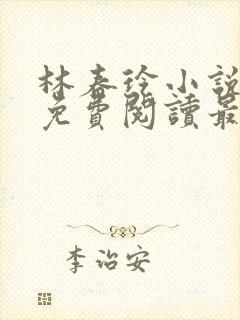 林春徐小說
免費閱讀最
李治安